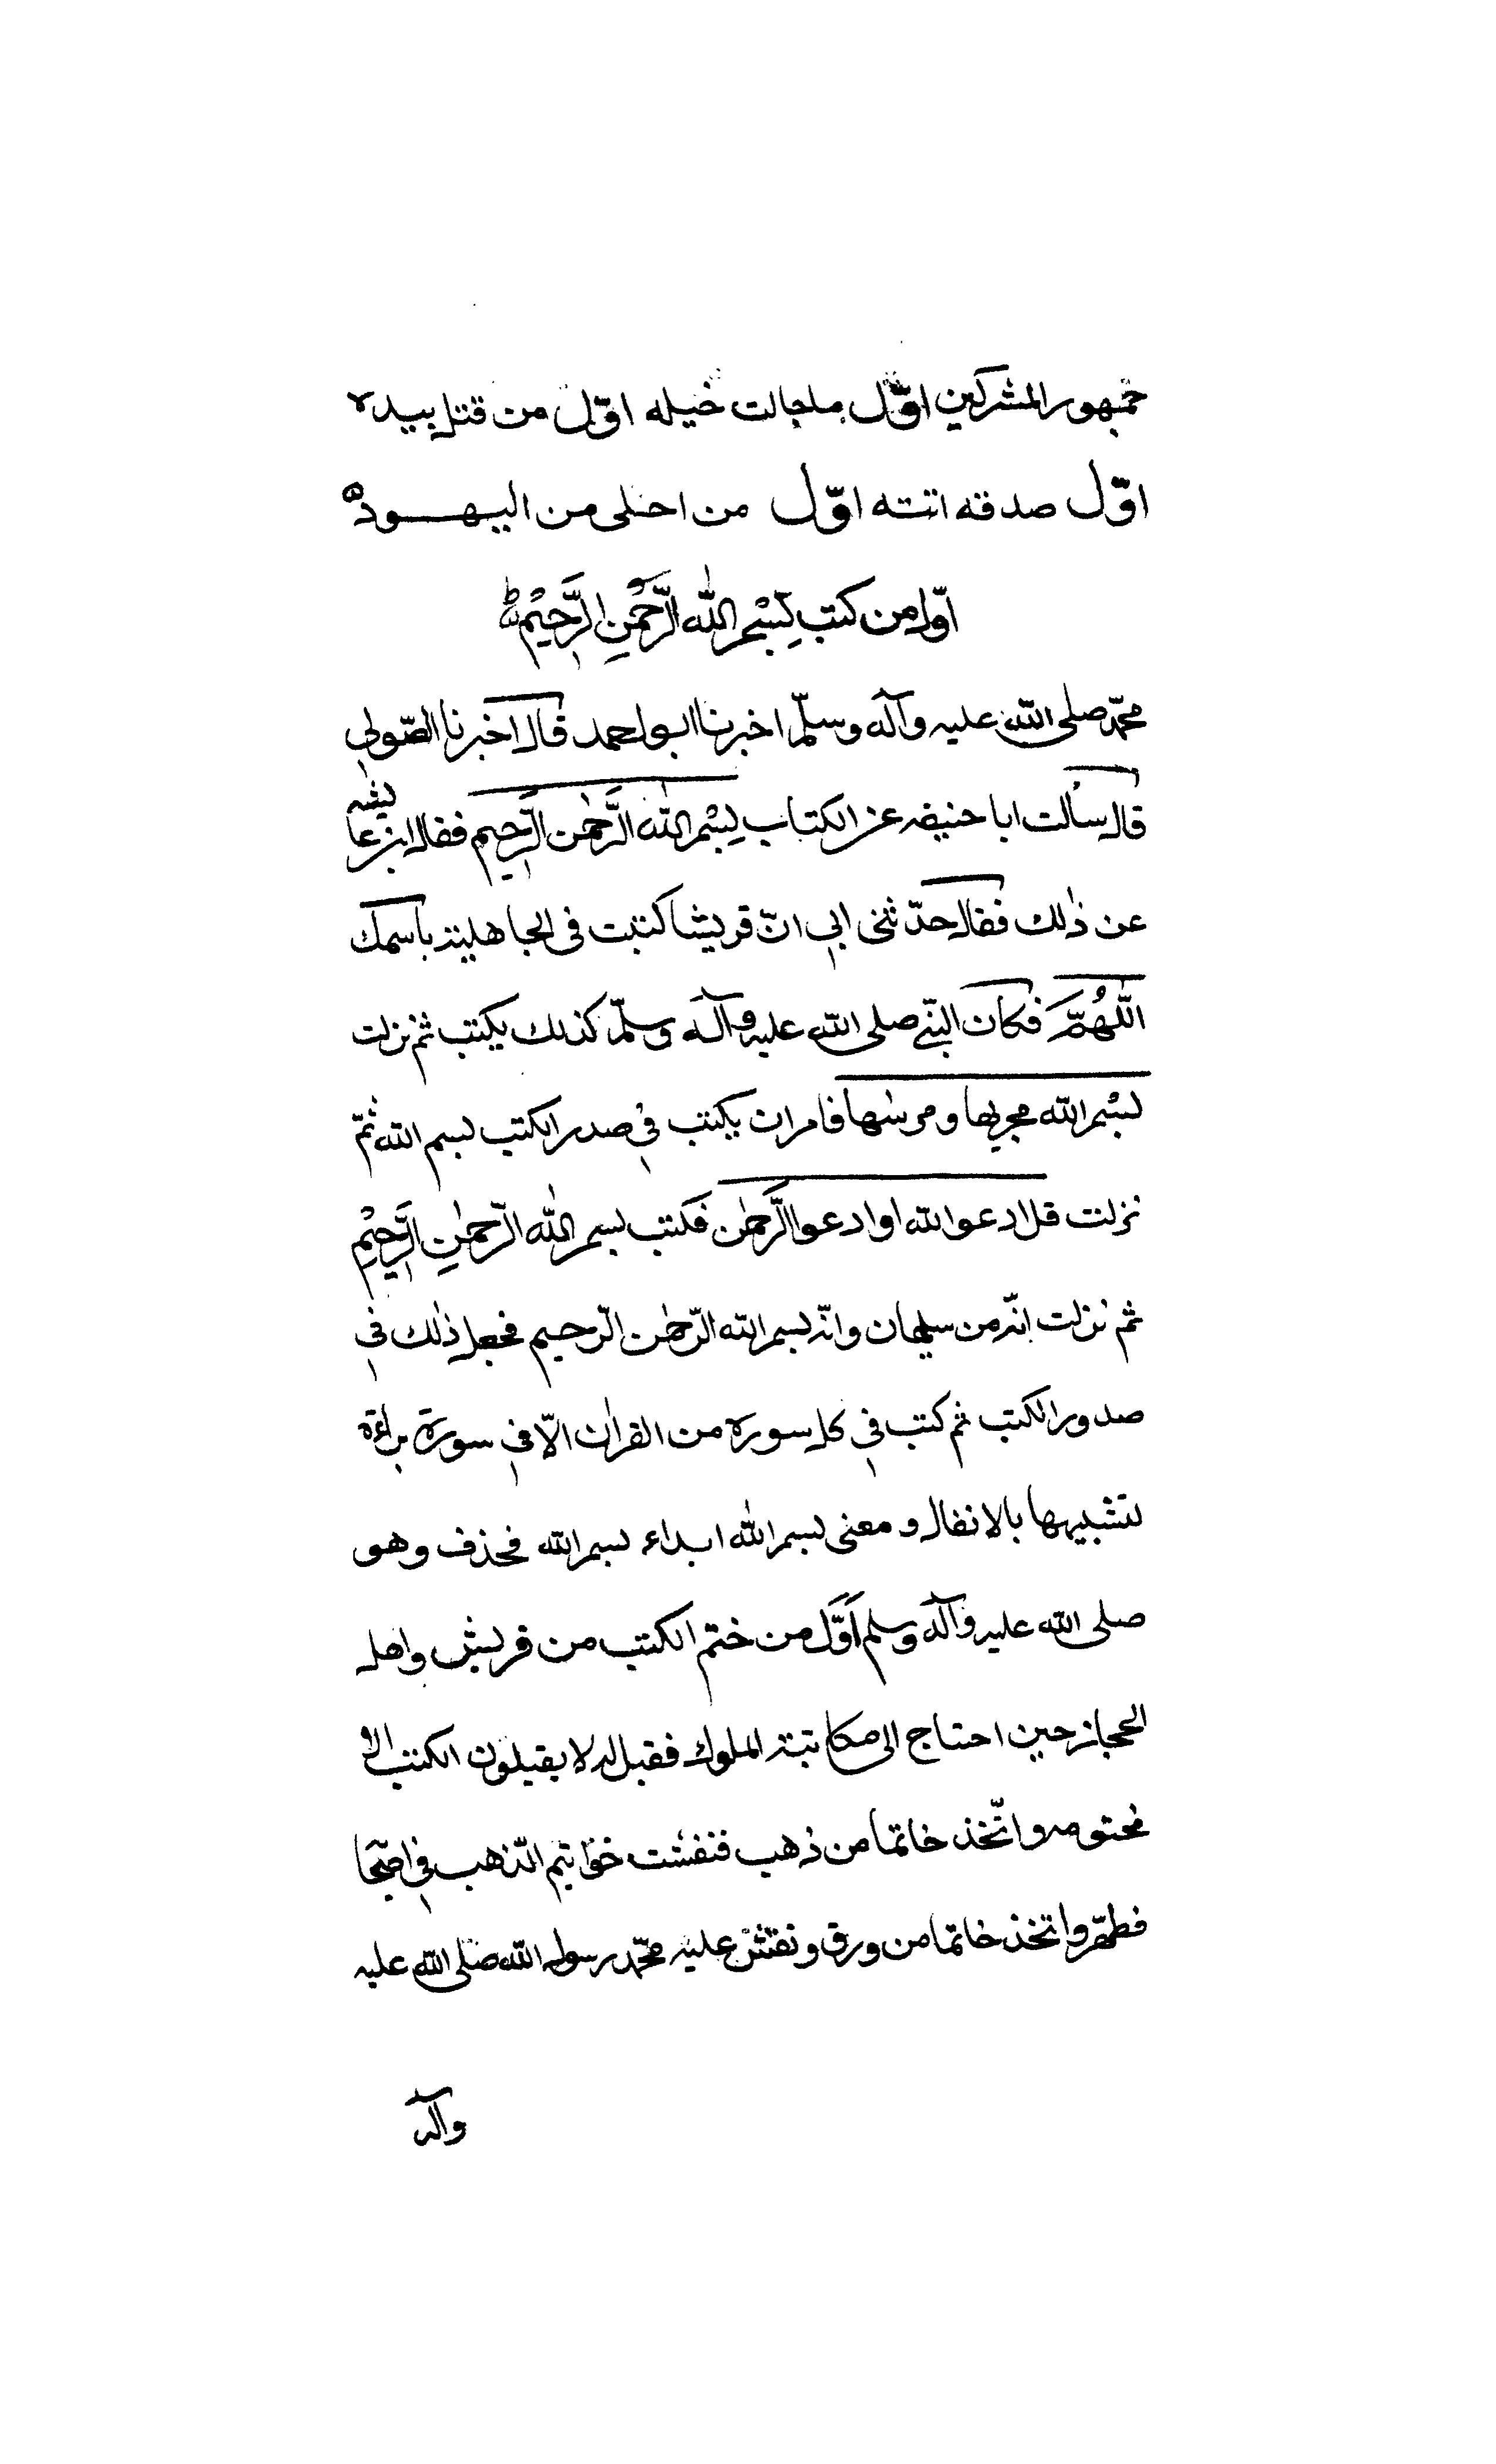 جمهور المشركين اوّل ماجالت خيله اوّل من قتل بيده
اوّل صدقه اتته اوّل من اجلى من اليهود
اوّل من كتب بِسْمِ اللّٰه الرَّحْمٰنِ الرَّحِيْمِ
محمّد صلى اللّه عليه وآله وسلّم اخبرنا ابو احمد قال اخبرنا الصّولي
قال سألت ابا حنيفه عن الكتاب بِسْمِ اللّٰه الرَّحمٰن الرَّحيم فقال ابن عايشه
عن ذٰلك فقال حدّثنى ابي انّ قريشا كتبت فى الجاهلية باسمك
اللّٰهُمَّ فكان النبّي صلى اللّه عليه وآله وسلّم كذلك يكتب ثم نزلت
بسْم الله مجريها ومرسٰها فامر ان يكتب في صدر الكتب بسم الله ثمّ
نزلت قل ادعوا الله او ادعوا الرَّحمٰن فكتب بسم اللّٰه الرّحمٰنِ الرَّحِيْمِ
ثم نزلت انّه من سليمان وانّه بسم الله الرّحمٰن الرّحيم فجعل ذٰلك في
صدور الكتب ثم كتب في كل سورة من القراٰن الّا في سورة براءة
لتشبيهها بالانفال و معنى بسم اللّٰه ابداء بسم اللّه فحذف وهو
صلى اللّه عليه وآله وسلم اَوَّل من ختم الكتب من قريش واهل
الحجاز حين احتاج الى مكاتبة الملوك فقيل له لا يقبلون الكتب الا
مختومه واتّخذ خاتما من ذهب ففشت خواتيم الذّهب في اصحا
فطهّر واتخذ خاتما من ورق ونقش عليه محمّد رسول الله صلى اللّه عليه
وآله